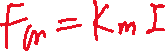 Fm = Km I